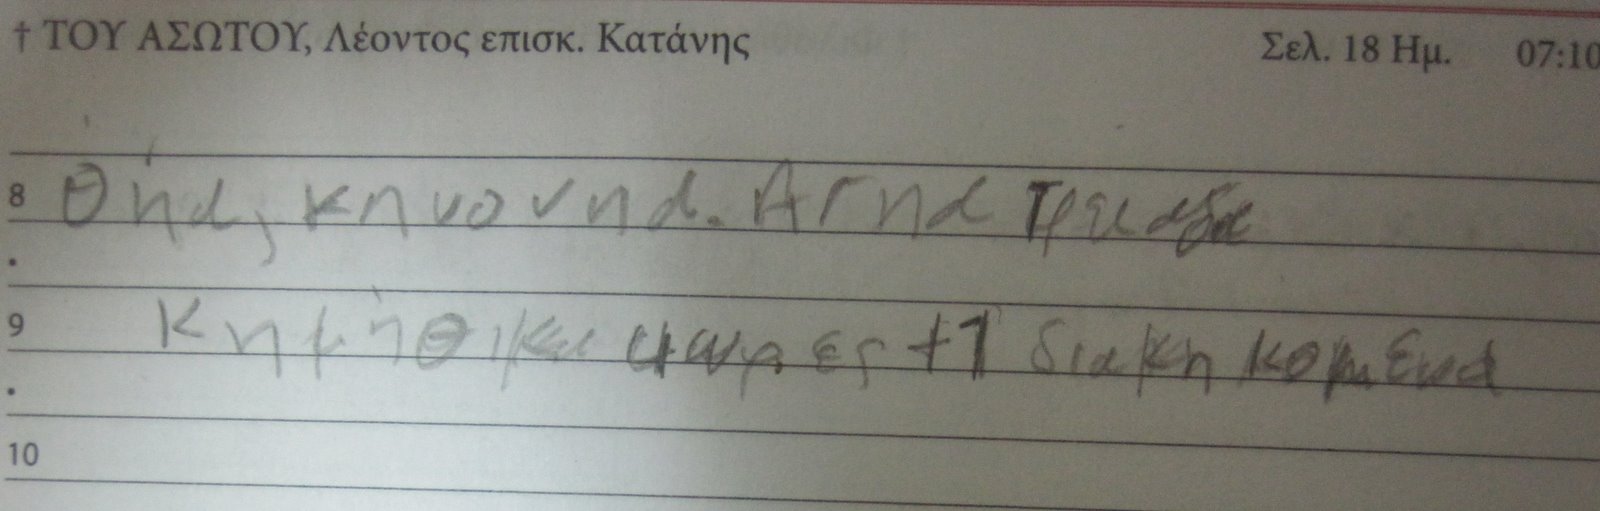 † ΤΟΥ ΑΣΩΤΟΥ, Λέοντος επισκ. Κατάνης Σελ. 18 Ημ. 07:10
8 Θήα, κηνονηα. Αγηα Τριαδα
9 Κημήθικα 4 ωρες +1 διακηκομενα
10